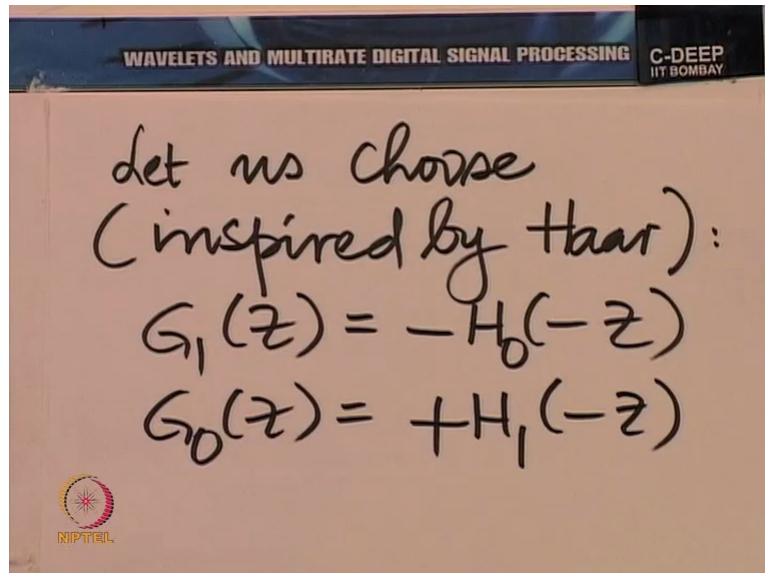 WAVELETS AND MULTIRATE DIGITAL SIGNAL PROCESSING
C-DEEP
IIT BOMBAY
Let us choose
(inspired by Haar):
G₁(Z) = −H₀(−Z)
G₀(Z) = +H₁(−Z)
NPTEL